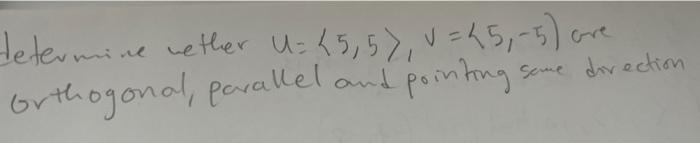 determine wether u=⟨5,5⟩, v=⟨5,-5) are
orthogonal, parallel and pointing same direction